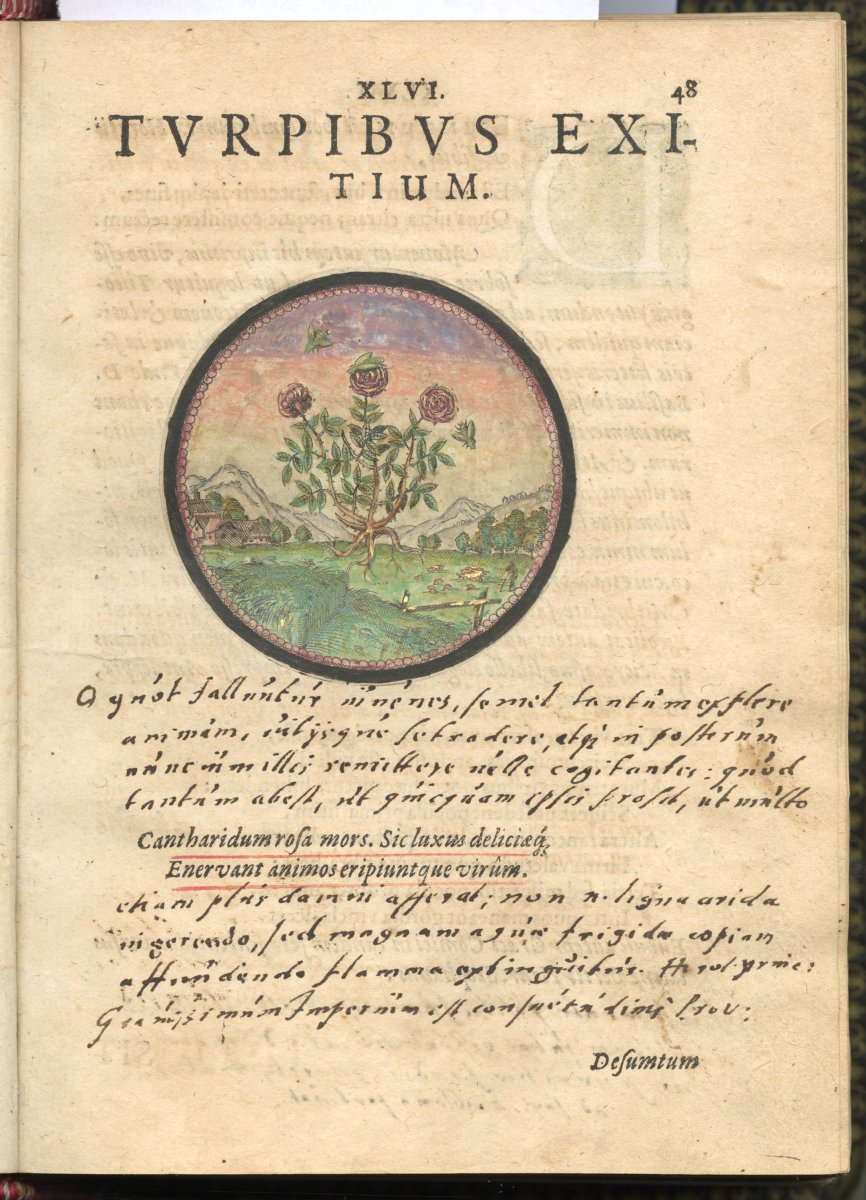 XLVI. 48
TVRPIBVS EXI-
TIUM.
O quot falluntur iuuenes, semel tantum explere
animam, iubijsque se tradere, atque in posterum
nuncium illis remittere uelle cogitantes: quod
tantum abest, ut quicquam ipsis prosit, ut multo
Cantharidum rosa mors. Sic luxus deliciæq́;
Enervant animos eripiuntque virûm.
etiam plus damni afferat; non n. ligna arida
ingerendo, sed magnam aquæ frigidæ copiam
affundendo flamma extinguitur.
Grauissimum Imperium est consuetudinis
Desumtum